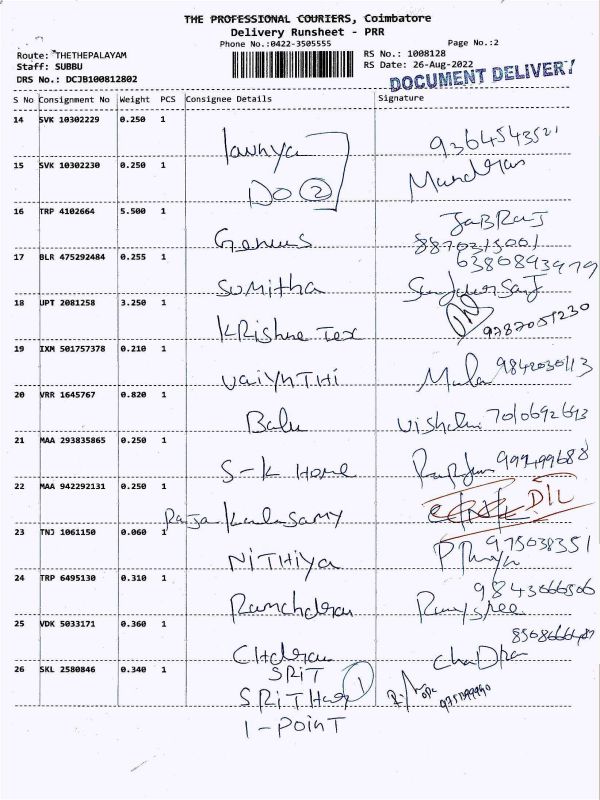 THE PROFESSIONAL COURIERS, Coimbatore
Delivery Runsheet - PRR
Phone No.:0422-3505555
Page No.:2
Route: THETHEPALAYAM
RS No.: 1008128
Staff: SUBBU
RS Date: 26-Aug-2022
DRS No.: DCJB100812802
DOCUMENT DELIVERY
S No Consignment No Weight PCS Consignee Details Signature
14 SVK 10302229 0.250 1
lavnya 9364543521
15 SVK 10302230 0.250 1
DO 2
16 TRP 4102664 5.500 1
Genius
17 BLR 475292484 0.255 1
63808943979
Sumitha
18 UPT 2081258 3.250 1
Krishne Tex 9787051230
19 IXM 501757378 0.210 1
VAIYNTHI Mala 9842030113
20 VRR 1645767 0.820 1
Balu
21 MAA 293835865 0.250 1
S-K Home
22 MAA 942292131 0.250 1
D/L
Raja Kalasamy
23 TNJ 1061150 0.060 1
975038351
NITHIYA
24 TRP 6495130 0.310 1
9843666506
25 VDK 5033171 0.360 1
26 SKL 2580846 0.340 1
SRIT
1
1-POINT